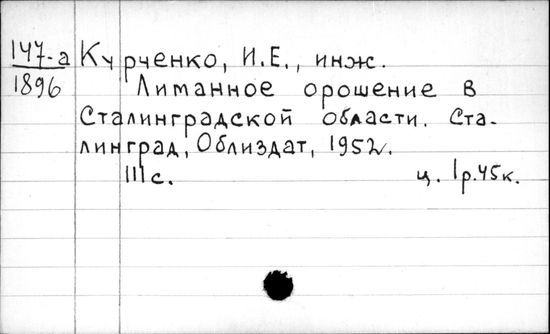 147-а Курченко, И.Е., инж.
1896 Лиманное орошение в
Сталинградской области. Ста-
линград, Облиздат, 1952.
111с. ц. 1р.45к.